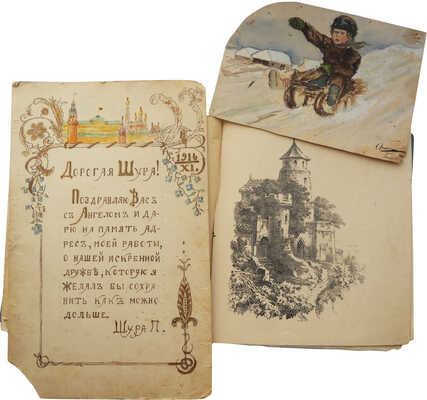 1914
XI.
Дорогая Шура!
Поздравляю Васъ
съ Ангеломъ и да-
рю на память ад-
ресъ, моей работы,
о нашей искренной
дружбѣ, которую я
желалъ бы сохра-
нить какъ можно
дольше.
Шура П.